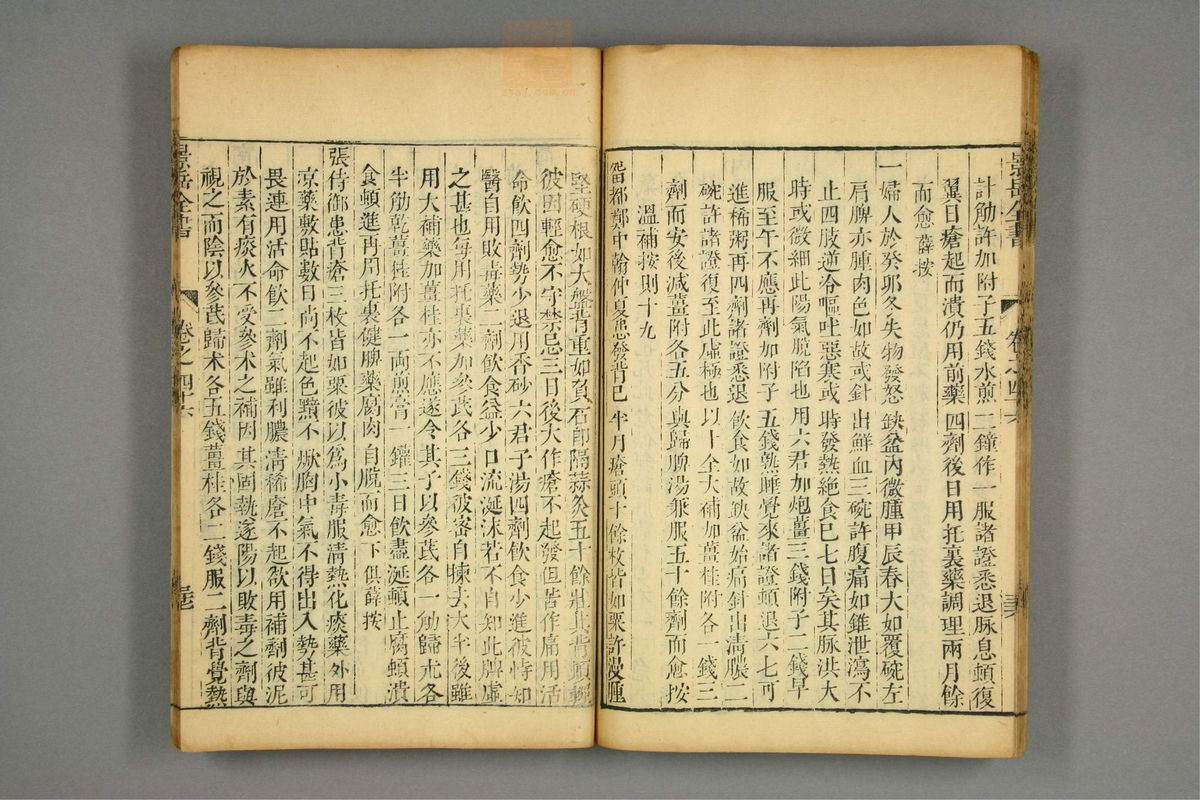 景岳全書
計觔許加附子五錢水煎二鐘作一服諸證悉退脉息頓復
翼日瘡起而潰仍用前藥四劑後日用托裏藥調理兩月餘
而愈薛按
一婦人於癸卯冬失物發怒缺盆內微腫甲辰春大如覆碗左
肩脾亦腫肉色如故或針出鮮血三碗許腹痛如錐泄瀉不
止四肢逆冷嘔吐惡寒或時發熱絶食已七日矣其脉洪大
時或微細此陽氣脫陷也用六君加炮薑三錢附子二錢早
服至午不應再劑加附子五錢熟睡覺來諸證頓退六七可
進稀粥再四劑諸證悉退飲食如故缺盆始痛針出淸膿二
碗許諸證復至此虛極也以十全大補加薑桂附各一錢三
劑而安後减薑附各五分與歸脾湯兼服五十餘劑而愈按
溫補按則十九
畱都鄭中翰仲夏患發背已半月瘡頭十餘枚皆如粟許漫腫
堅硬根如大盤背重如負石卽隔蒜灸五十餘壯其背頓輕
彼因輕愈不守禁忌三日後大作瘡不起發但苦作痛用活
命飲四劑勢少退用香砂六君子湯四劑飲食少進彼恃知
醫自用敗毒藥二劑飲食益少口流涎沫若不自知此脾虛
之甚也每用托裏藥加參芪各三錢彼密自揀去大半後雖
用大補藥加薑桂亦不應遂令其子以參芪各一觔歸朮各
半觔乾薑桂附各一両煎膏一鑵三日飲盡涎頓止腐頓潰
食頓進再用托裏健脾藥腐肉自脫而愈下俱薛按
張侍御患背瘡三枚皆如粟彼以爲小毒服淸熱化痰藥外用
涼藥敷貼數日尚不起色黯不焮胸中氣不得出入勢甚可
畏連用活命飲二劑氣雖利膿淸稀瘡不起欲用補劑彼泥
於素有痰火不受參术之補因其固執遂陽以敗毒之劑與
視之而陰以參芪歸术各五錢薑桂各二錢服二劑背覺熱
景岳全書
卷之四十六